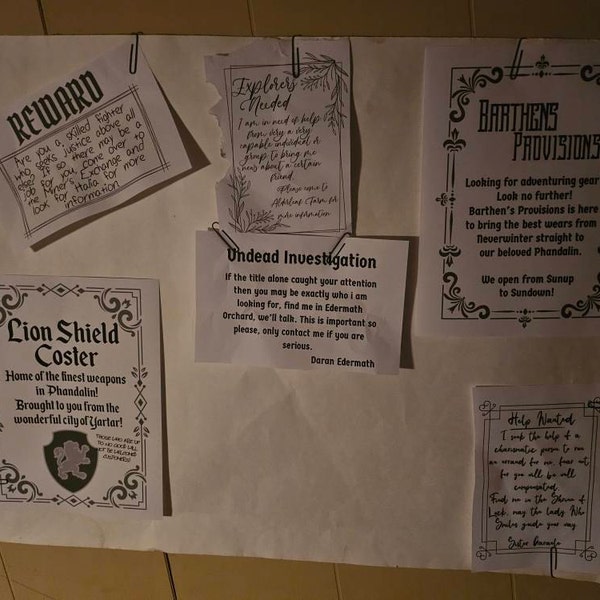 REWARD
Are you a skilled fighter
who seeks justice above all
else? If so there may be a
job for you, come over to
the Miner's Exchange and
look for "Halia for more
information
Explorers
Needed
I am in need of help
from very a very
capable individual or
group to bring me
news about a certain
friend.
Please come to
Alderleaf Farm for
more information
Undead Investigation
If the title alone caught your attention
then you may be exactly who i am
looking for, find me in Edermath
Orchard, we'll talk. This is important so
please, only contact me if you are
serious.
Daran Edermath
BARTHENS
PROVISIONS
Looking for adventuring gear
Look no further!
Barthen's Provisions is here
to bring the best wears from
Neverwinter straight to
our beloved Phandalin.
We open from Sunup
to Sundown!
Lion Shield
Coster
Home of the finest weapons
in Phandalin!
Brought to you from the
wonderful city of Yartar!
THOSE WHO ARE UP
TO NO GOOD WILL
NOT BE WELCOME
CUSTOMERS!
Help Wanted
I seek the help of a
charismatic person to run
an errand for me, fear not
for you will be well
compensated.
Find me in the Shrine of
Luck, may the lady Who
Smiles guide your way.
Sister Garaele